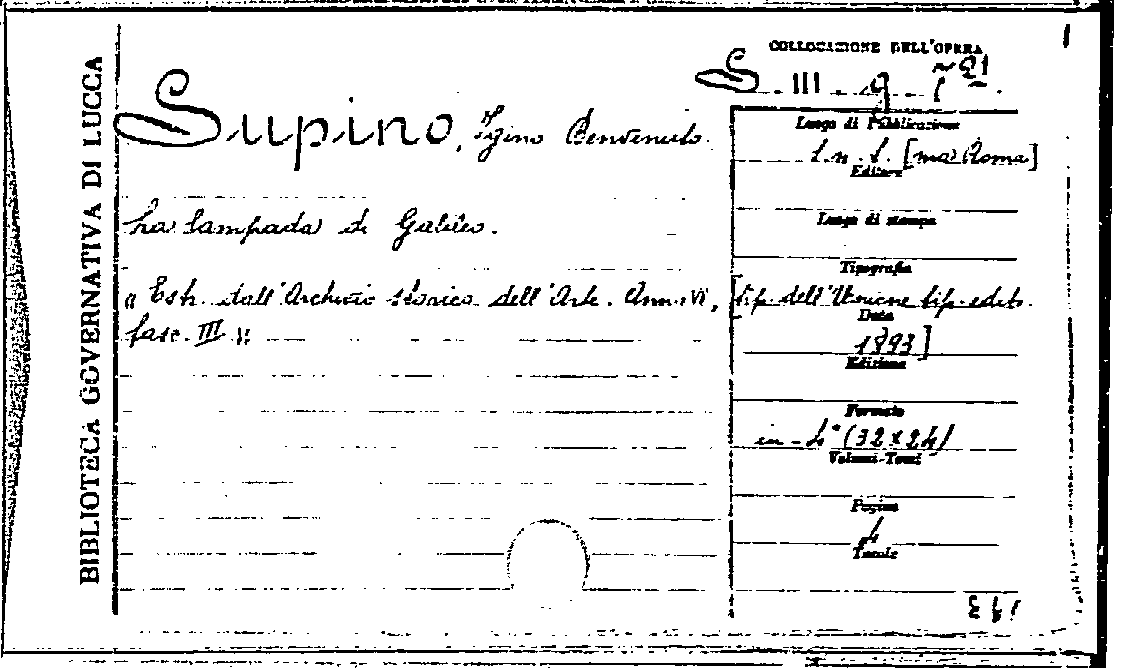 BIBLIOTECA GOVERNATIVA DI LUCCA
COLLOCAZIONE DELL'OPERA
S. III - g - 1 ~ 21
Supino, Igino Benvenuto.
La lampada di Galileo.
« Estr. dall'Archivio storico dell'Arte. Anno VI,
fasc. III »
Luogo di Pubblicazione
s. n. l. [ma Roma]
Editore
Luogo di stampa
Tipografia
[tip. dell'Unione tip. edit.
Data
1893]
Edizione
Formato
in-4° (32 x 24)
Volumi-Tomi
Pagine
Tavole